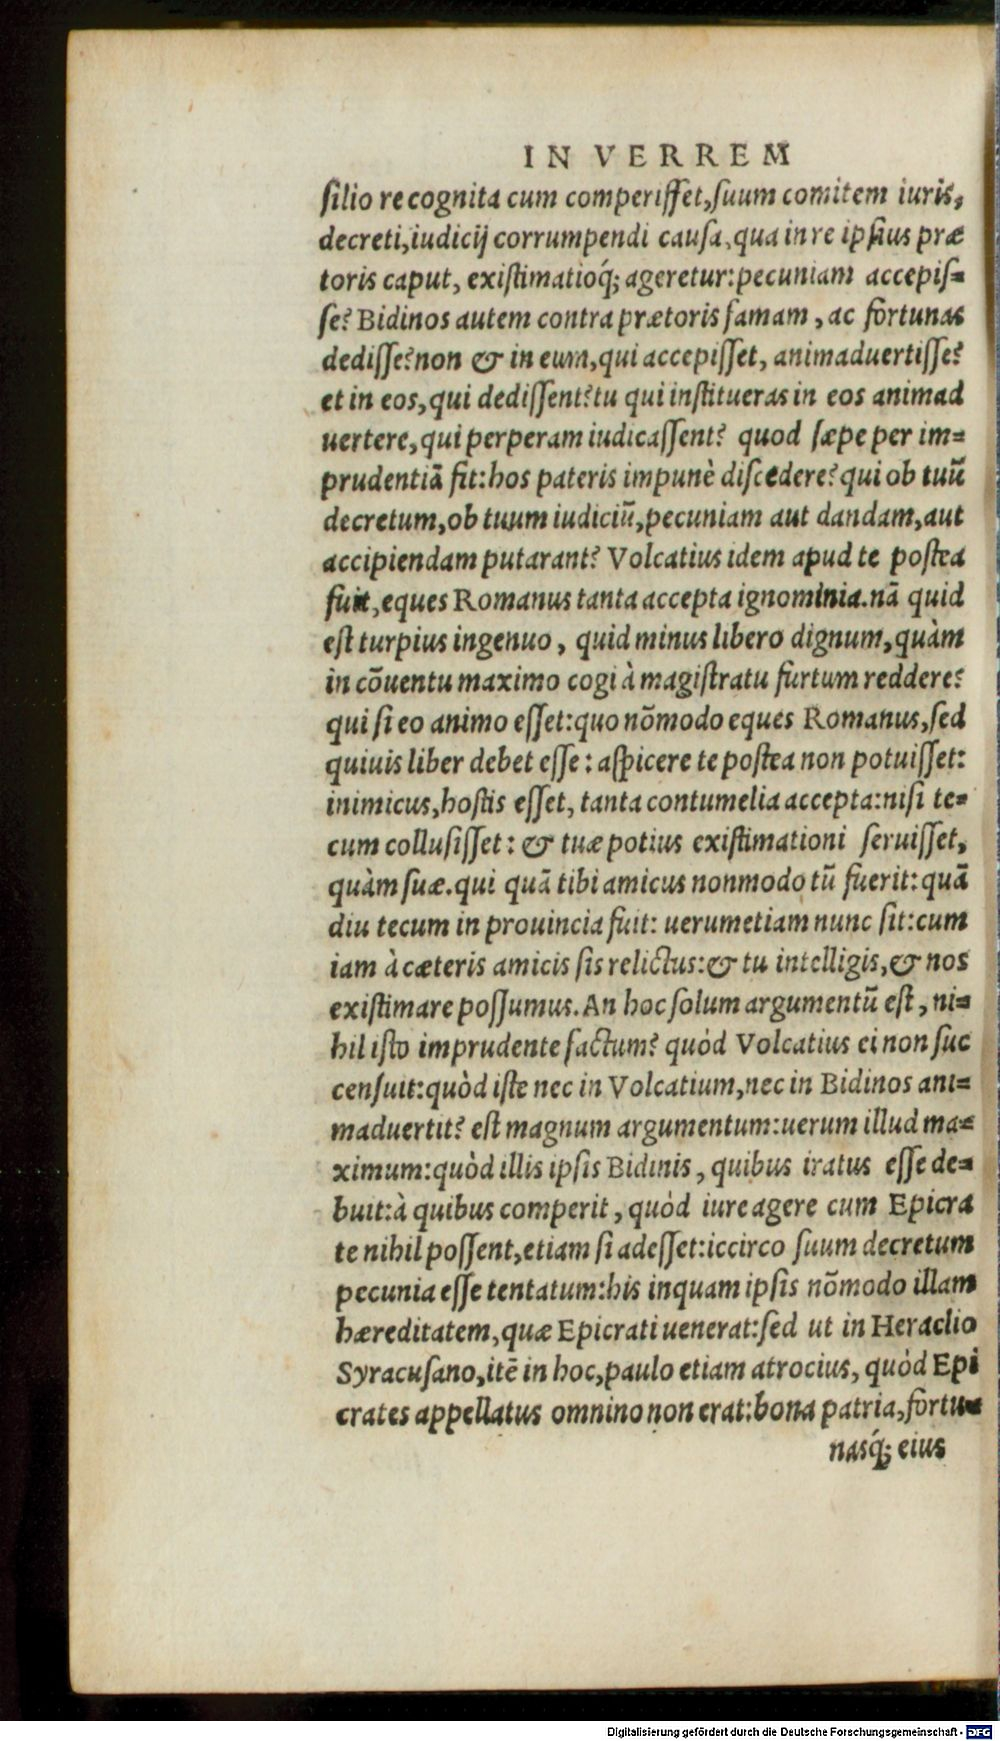 IN VERREM
silio recognita cum comperisset, suum comitem iuris,
decreti, iudicij corrumpendi causa, qua in re ipsius præ
toris caput, existimatioq́; ageretur: pecuniam accepis=
se? Bidinos autem contra prætoris famam, ac fortunas
dedisse? non & in eum, qui accepisset, animaduertisse?
et in eos, qui dedissent? tu qui institueras in eos animad
uertere, qui perperam iudicassent? quod sæpe per im=
prudentiā fit: hos pateris impunè discedere? qui ob tuū
decretum, ob tuum iudiciū, pecuniam aut dandam, aut
accipiendam putarant? Volcatius idem apud te postea
fuit, eques Romanus tanta accepta ignominia. nā quid
est turpius ingenuo, quid minus libero dignum, quàm
in cōuentu maximo cogi à magistratu furtum reddere?
qui si eo animo esset: quo nōmodo eques Romanus, sed
quiuis liber debet esse: aspicere te postea non potuisset:
inimicus, hostis esset, tanta contumelia accepta: nisi te=
cum collusisset: & tuæ potius existimationi seruisset,
quàm suæ. qui quā tibi amicus nonmodo tū fuerit: quā
diu tecum in prouincia fuit: uerumetiam nunc sit: cum
iam à cæteris amicis sis relictus: & tu intelligis, & nos
existimare possumus. An hoc solum argumentū est, ni=
hil isto imprudente factum? quòd Volcatius ei non suc
censuit: quòd iste nec in Volcatium, nec in Bidinos ani=
maduertit? est magnum argumentum: uerum illud ma=
ximum: quòd illis ipsis Bidinis, quibus iratus esse de=
buit: à quibus comperit, quòd iure agere cum Epicra
te nihil possent, etiam si adesset: iccirco suum decretum
pecunia esse tentatum: his inquam ipsis nōmodo illam
hæreditatem, quæ Epicrati uenerat: sed ut in Heraclio
Syracusano, itē in hoc, paulo etiam atrocius, quòd Epi
crates appellatus omnino non erat: bona patria, fortu=
nasq́; eius
Digitalisierung gefördert durch die Deutsche Forschungsgemeinschaft - DFG